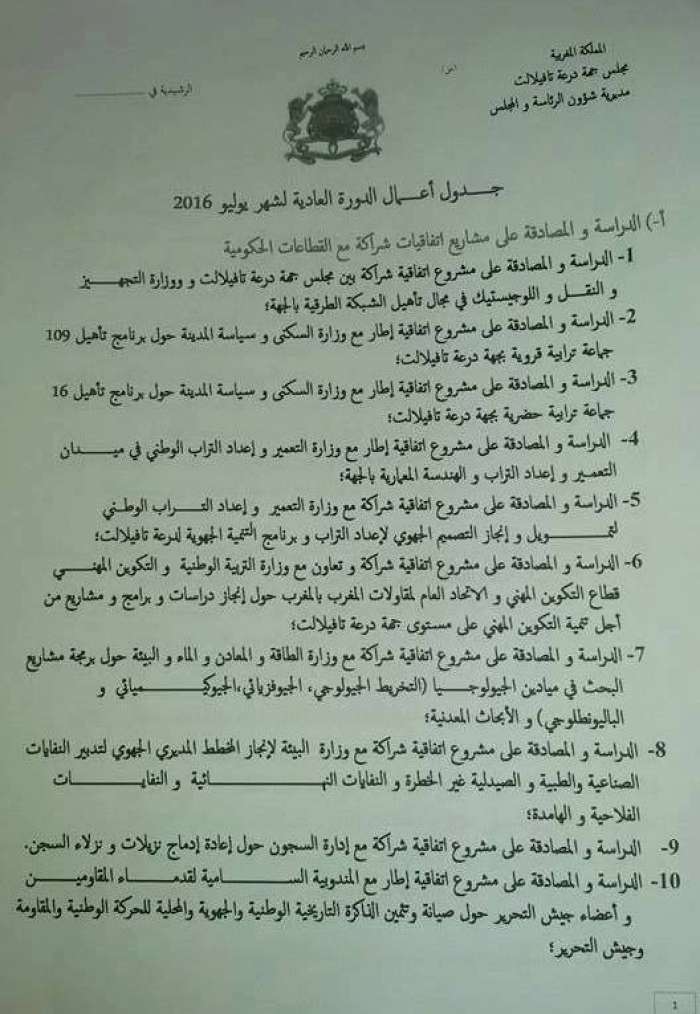 بسم الله الرحمان الرحيم
المملكة المغربية
مجلس جهة درعة تافيلالت
مديرية شؤون الرئاسة و المجلس
الرشيدية في
جدول أعمال الدورة العادية لشهر يوليو 2016
أ-) الدراسة و المصادقة على مشاريع اتفاقيات شراكة مع القطاعات الحكومية
1- الدراسة و المصادقة على مشروع اتفاقية شراكة بين مجلس جهة درعة تافيلالت و ووزارة التجهيز
و النقل و اللوجيستيك في مجال تأهيل الشبكة الطرقية بالجهة؛
2- الدراسة و المصادقة على مشروع اتفاقية إطار مع وزارة السكنى و سياسة المدينة حول برنامج تأهيل 109
جماعة ترابية قروية بجهة درعة تافيلالت؛
3- الدراسة و المصادقة على مشروع اتفاقية إطار مع وزارة السكنى و سياسة المدينة حول برنامج تأهيل 16
جماعة ترابية حضرية بجهة درعة تافيلالت؛
4- الدراسة و المصادقة على مشروع اتفاقية إطار مع وزارة التعمير و إعداد التراب الوطني في ميدان
التعمير و إعداد التراب و الهندسة المعمارية بالجهة؛
5- الدراسة و المصادقة على مشروع اتفاقية شراكة مع وزارة التعمير و إعداد التراب الوطني
لتمويل و إنجاز التصميم الجهوي لإعداد التراب و برنامج التنمية الجهوية لدرعة تافيلالت؛
6- الدراسة و المصادقة على مشروع اتفاقية شراكة و تعاون مع وزارة التربية الوطنية و التكوين المهني
قطاع التكوين المهني و الاتحاد العام لمقاولات المغرب بالمغرب حول إنجاز دراسات و برامج و مشاريع من
أجل تنمية التكوين المهني على مستوى جهة درعة تافيلالت؛
7- الدراسة و المصادقة على مشروع اتفاقية شراكة مع وزارة الطاقة و المعادن و الماء و البيئة حول برمجة مشاريع
البحث في ميادين الجيولوجيا (التخريط الجيولوجي، الجيوفزيائي،الجيوكيميائي و
الباليونطلوجي) و الأبحاث المعدنية؛
8- الدراسة و المصادقة على مشروع اتفاقية شراكة مع وزارة البيئة لإنجاز المخطط المديري الجهوي لتدبير النفايات
الصناعية والطبية و الصيدلية غير الخطرة و النفايات النهائية و النفايات
الفلاحية و الهامدة؛
9- الدراسة و المصادقة على مشروع اتفاقية شراكة مع إدارة السجون حول إعادة إدماج نزيلات و نزلاء السجن.
10- الدراسة و المصادقة على مشروع اتفاقية إطار مع المندوبية السامية لقدماء المقاومين
و أعضاء جيش التحرير حول صيانة وتثمين الذاكرة التاريخية الوطنية والجهوية والمحلية للحركة الوطنية والمقاومة
وجيش التحرير؛
1